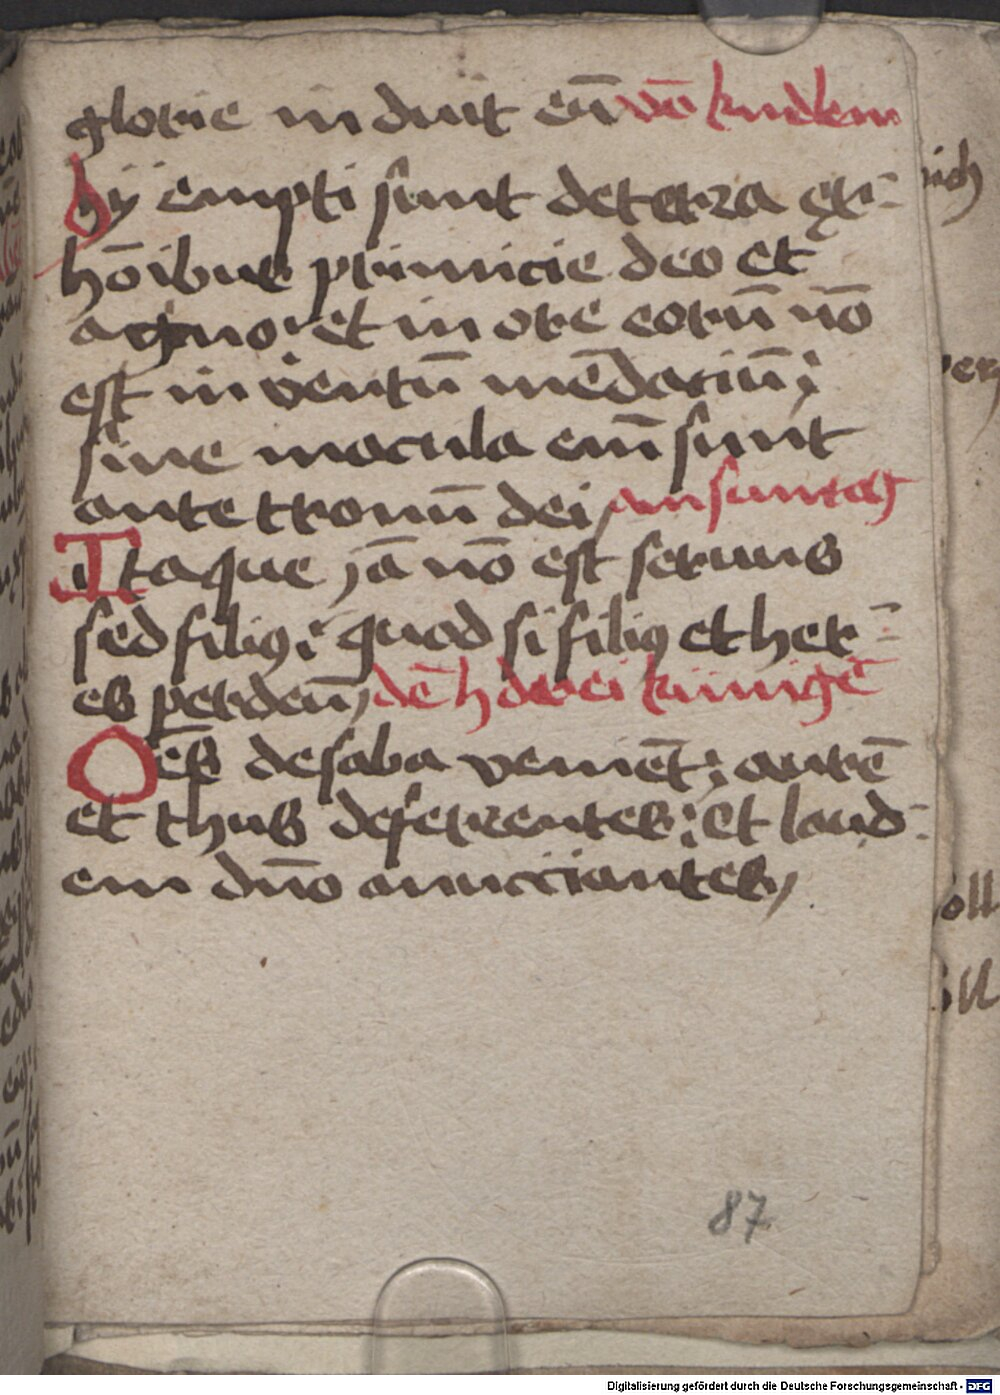 glorie induit eū vō kindlem
Hij empti sunt de terra ex-
hōibus primicie deo et
agno: et in ore eorū nō
est inventū mēdatiū;
sine macula em̄ sunt
ante tronū dei, am suntag
Itaque jā nō est servus
sed filiꝯ: quod si filiꝯ et her-
es per deū, dē h drei künigē
Oēs de saba venient; aurū
et thus deferentes: et laud-
em dn̄o annuciantes,
87
Digitalisierung gefördert durch die Deutsche Forschungsgemeinschaft - DFG